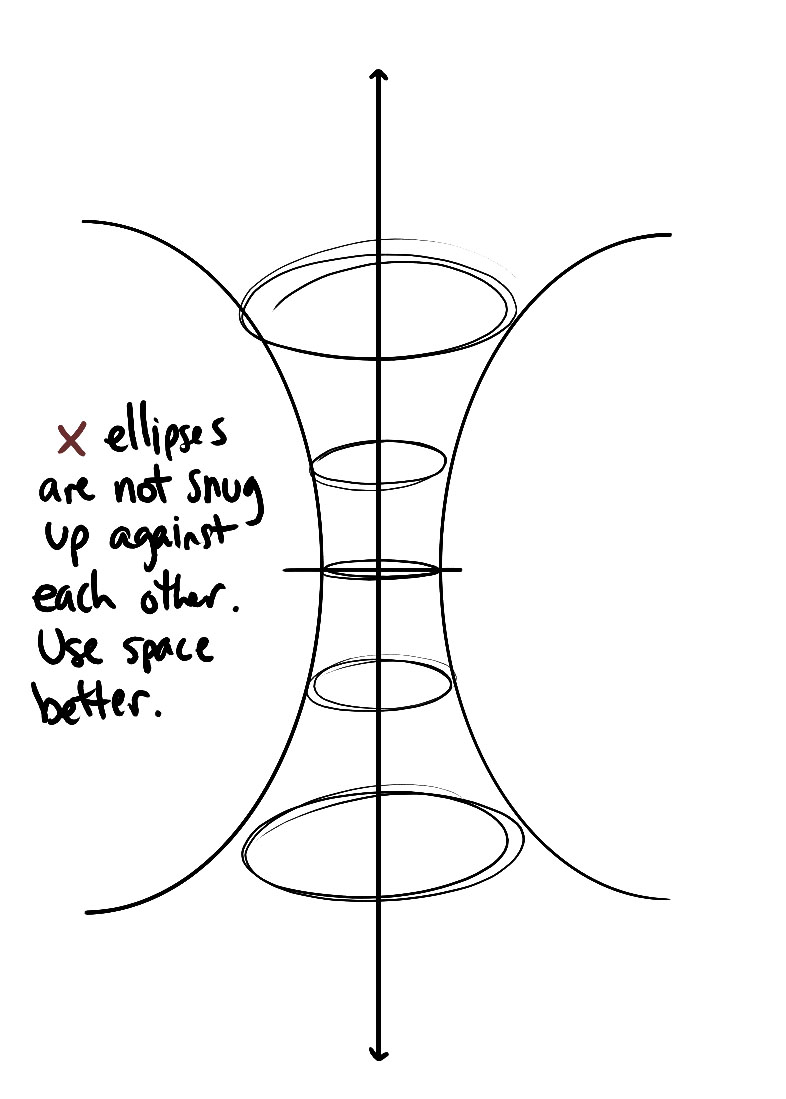 x ellipses
are not snug
up against
each other.
Use space
better.